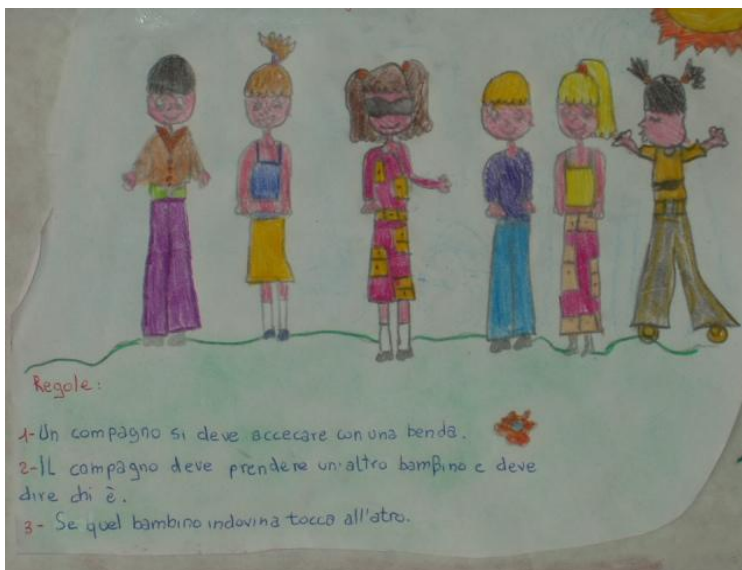 Regole:
1-Un compagno si deve accecare con una benda.
2-Il compagno deve prendere un'altro bambino e deve
dire chi è.
3- Se quel bambino indovina tocca all'atro.